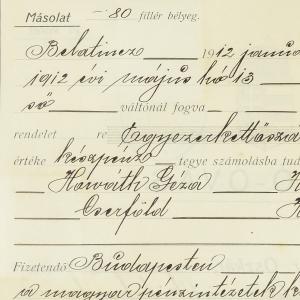 Másolat — 80 fillér bélyeg.
Belatincz 1912 január
1912 évi május hó 13
ső váltónál fogva
rendelet re Egyezerkettőszá
értéke készpénz tegye számolásba tud
Horváth Géza H
Cserföld
Fizetendő Budapesten
a magyar pénzintézetek k